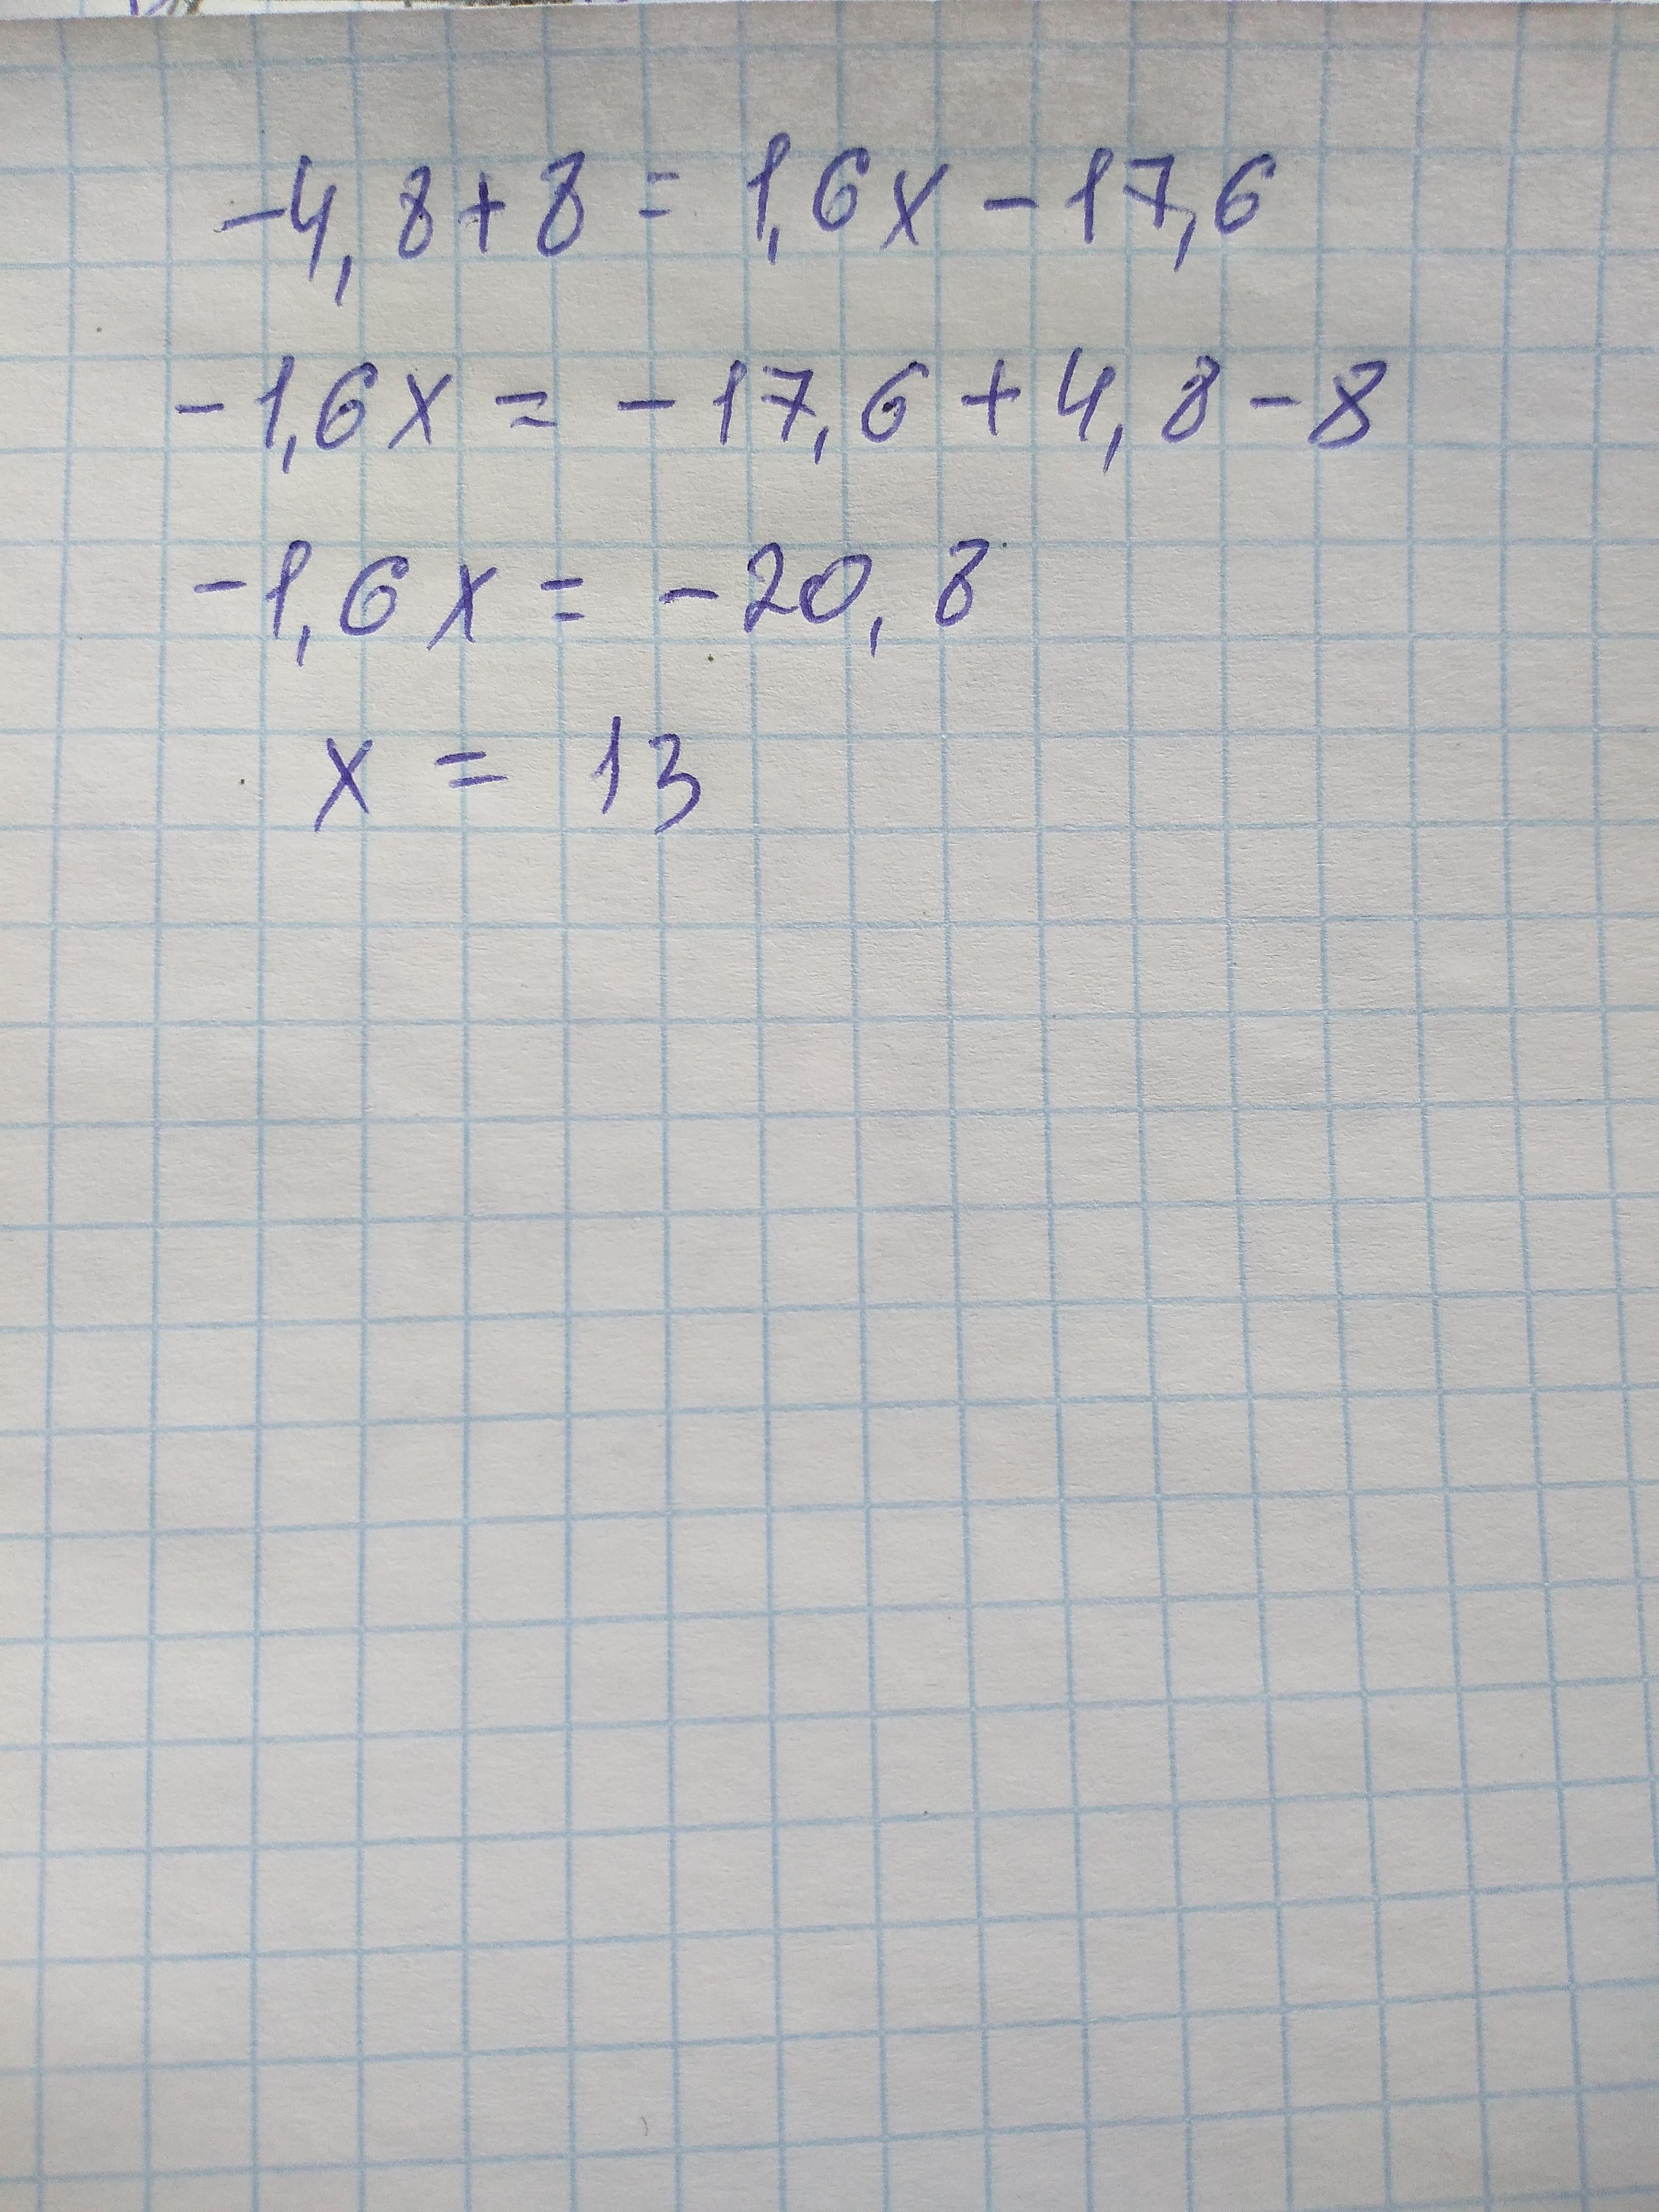 -4,8+8=1,6x-17,6
-1,6x=-17,6+4,8-8
-1,6x=-20,8
x=13